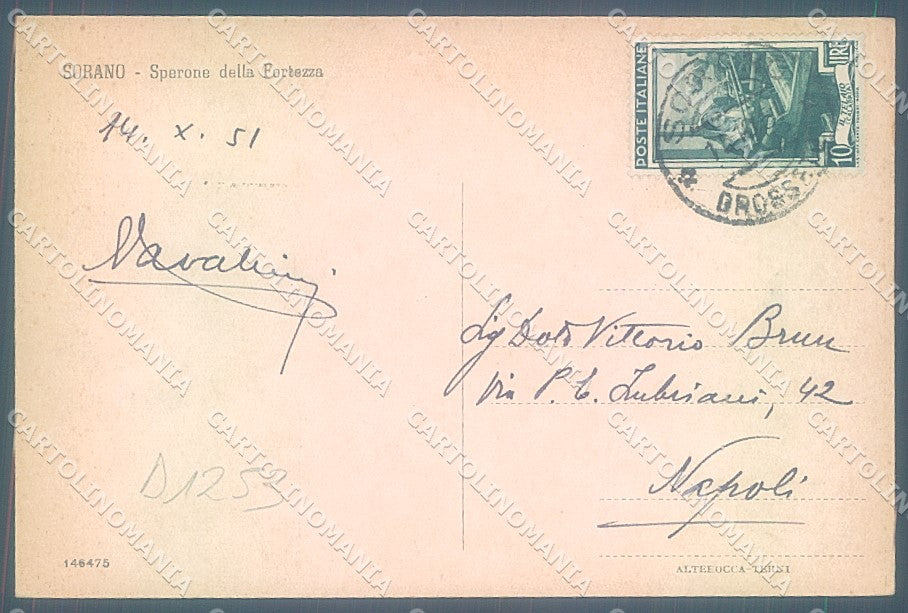 SORANO - Sperone della Fortezza
14. X. 51
POSTE ITALIANE
LIRE
10
SORANO
GROSSETO
Sig Dott Vittorio Brun
Via P. C. 42
Napoli
D1253
146475
ALTEROCCA-TERNI
CARTOLINOMANIA